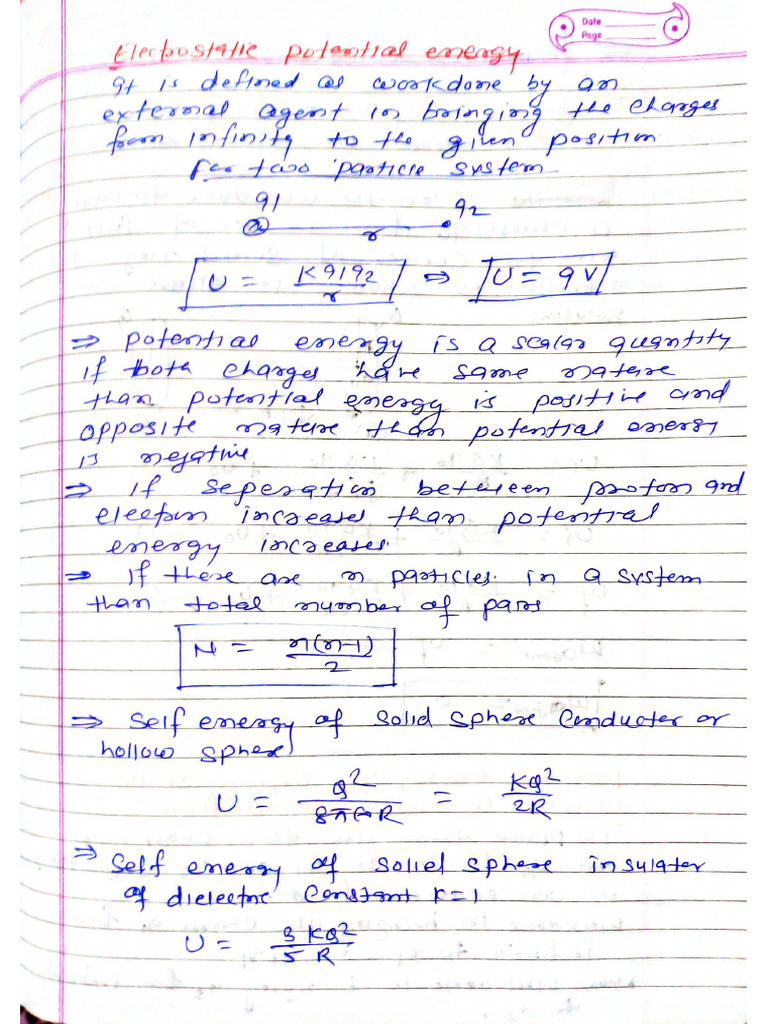 Date
Page
Electrostatic potential energy
It is defined as workdone by an
external agent in bringing the charges
from infinity to the given position
for two particle system
q1 q2
r
U = Kq1q2/r ⇒ U = qV
⇒ potential energy is a scalar quantity
if both charges have same nature
than potential energy is positive and
opposite nature than potential energy
is negative
⇒ if seperation between proton and
electron increases than potential
energy increases.
⇒ If there are n particles in a system
than total number of pairs
N = n(n-1)/2
⇒ Self energy of solid sphere conductor or
hollow sphere
U = Q²/8π∈0R = KQ²/2R
⇒ Self energy of solid sphere insulater
of dielectric constant K=1
U = 3KQ²/5R